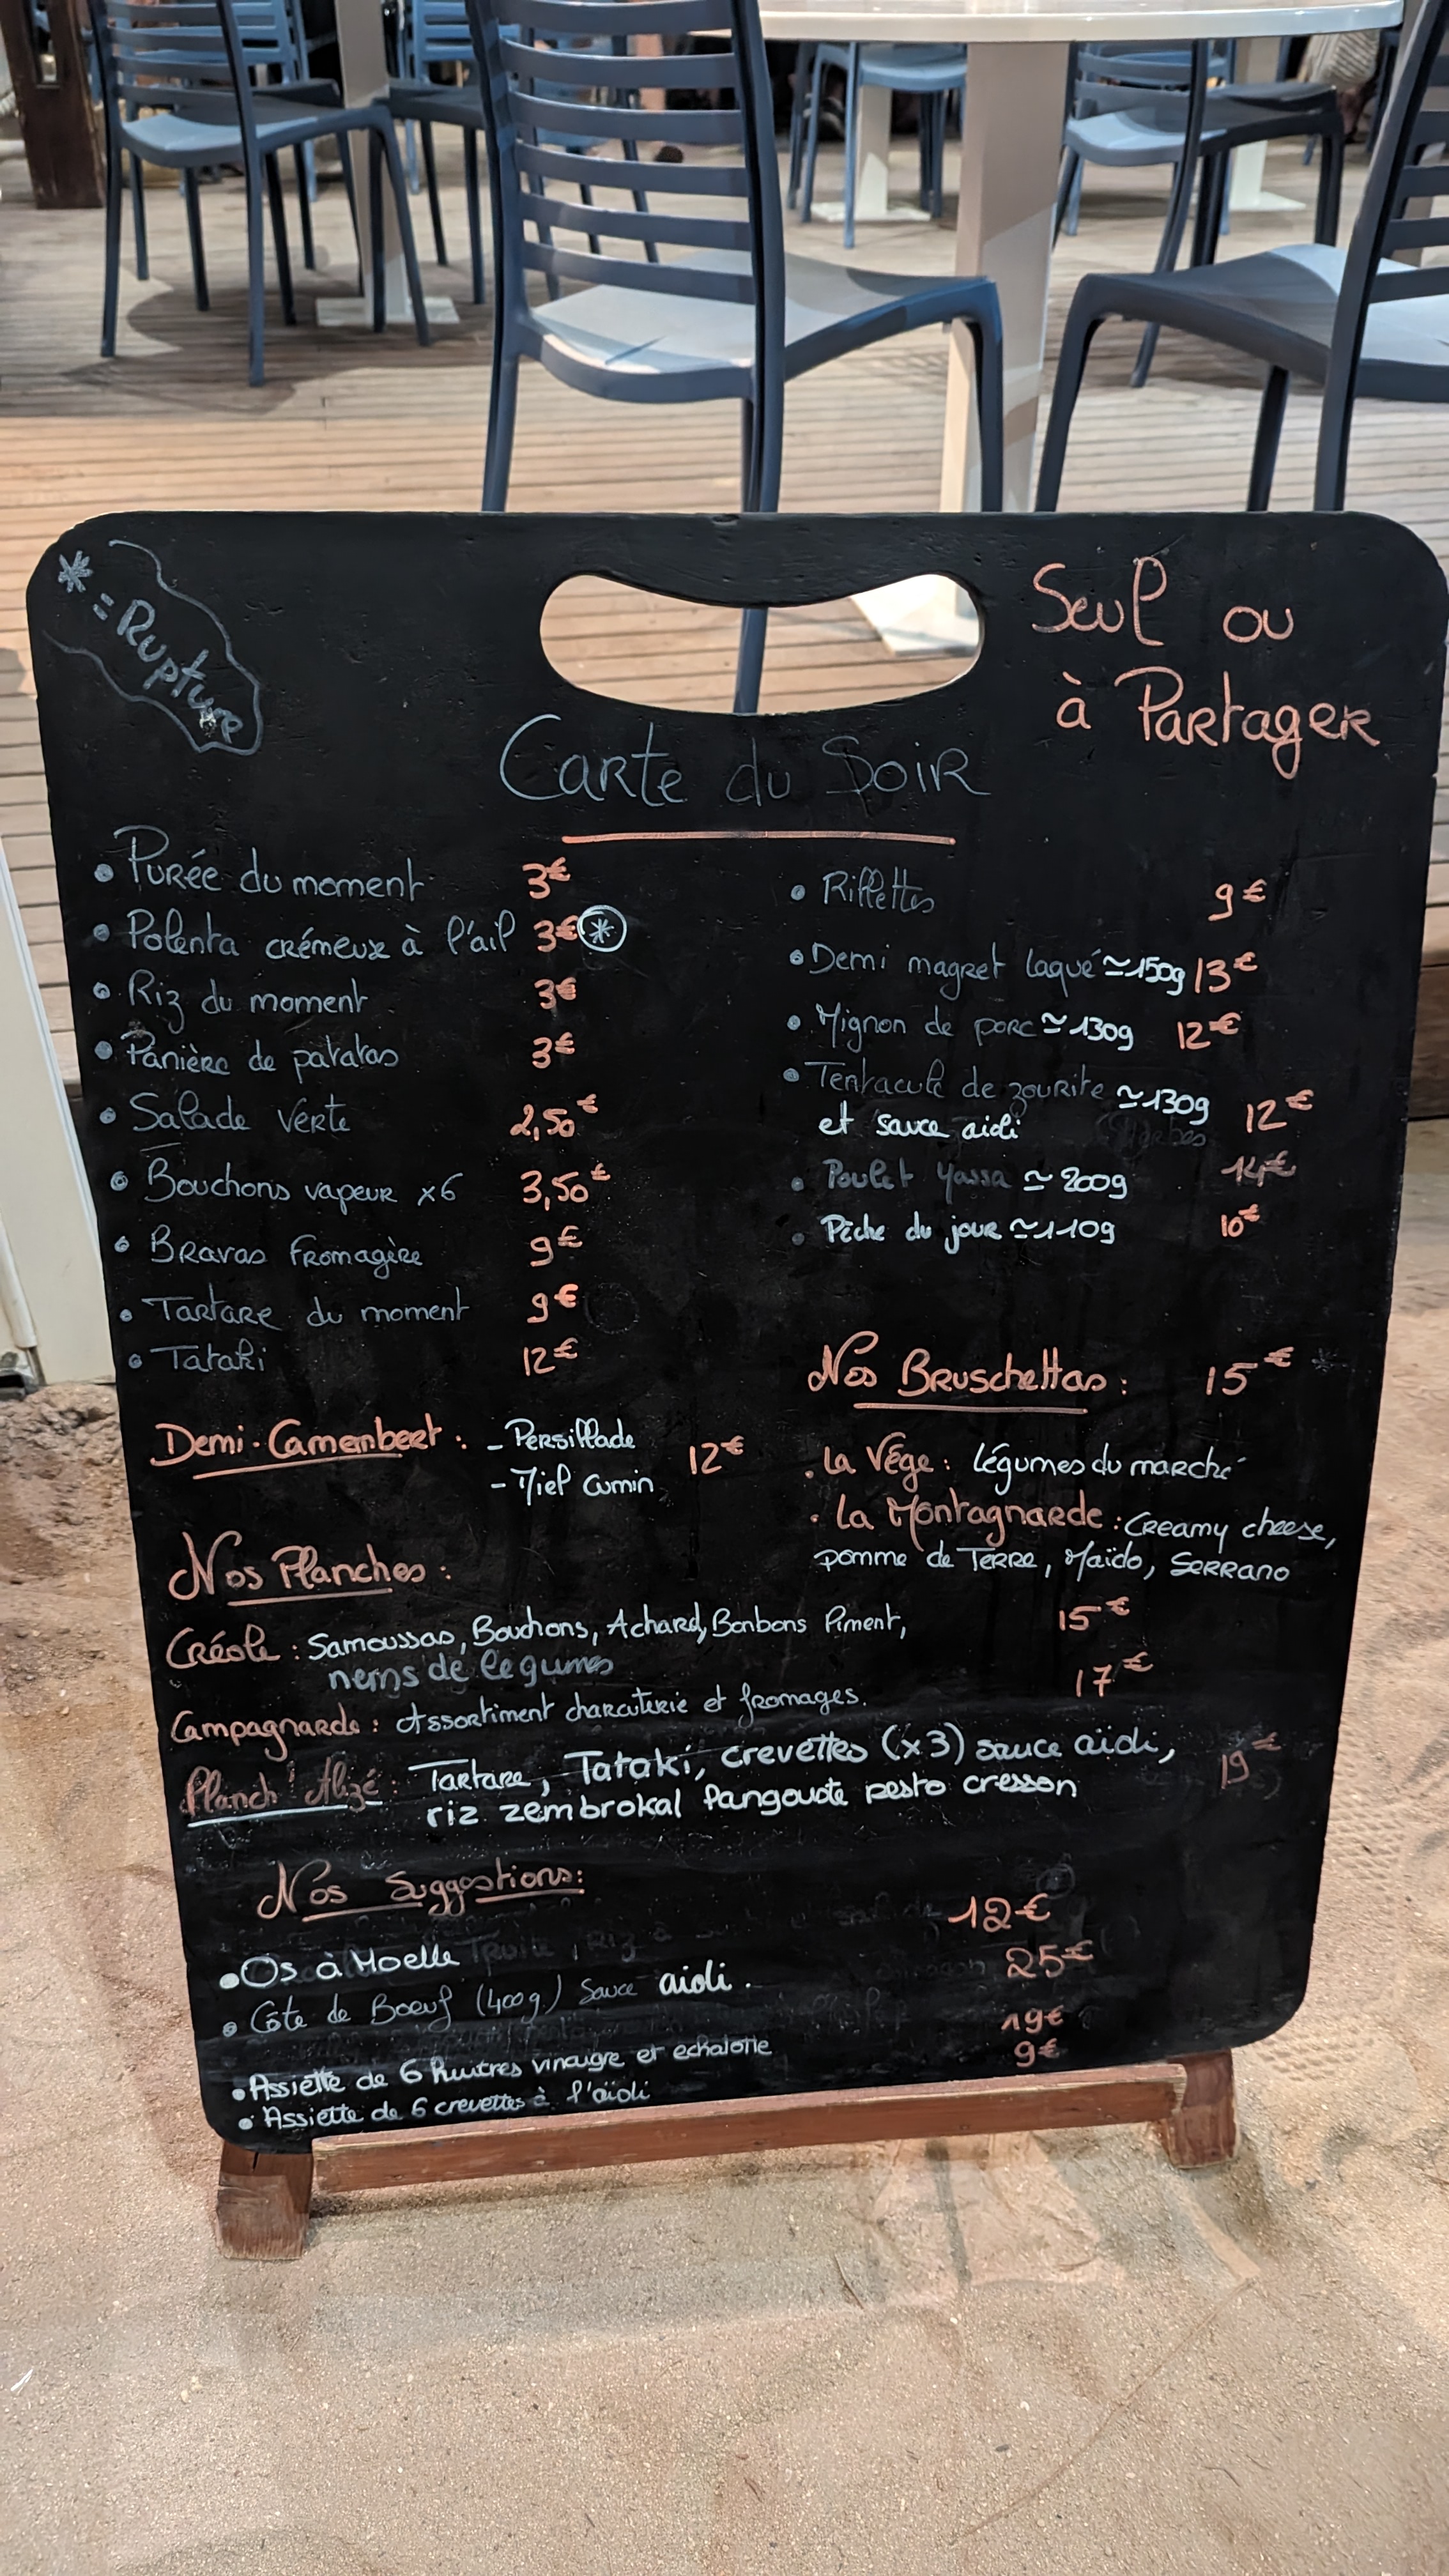 * = Rupture
Seul ou
à Partager
Carte du Soir
• Purée du moment 3€
• Polenta crémeux à l'ail 3€ *
• Riz du moment 3€
• Panière de patatas 3€
• Salade verte 2,50€
• Bouchons vapeur x6 3,50€
• Bravas fromagère 9€
• Tartare du moment 9€
• Tataki 12€
• Rillettes 9€
• Demi magret laqué ≃150g 13€
• Mignon de porc ≃130g 12€
• Tentacule de zourite ≃130g 12€
et sauce aioli
• Poulet yassa ≃200g 14€
• Pêche du jour ≃110g 10€
Demi-Camembert : - Persillade 12€
- Miel Cumin
Nos Bruschettas : 15€ *
• La Végé : légumes du marché
• La Montagnarde : Creamy cheese,
pomme de Terre, Maïdo, Serrano
Nos Planches :
Créole : Samoussas, Bouchons, Achard, Bonbons Piment, 15€
nems de legumes
Campagnarde : Assortiment charcuterie et fromages. 17€
Planch' Alizé : Tartare, Tataki, crevettes (x3) sauce aïoli, 19€
riz zembrokal Pangoute pesto cresson
Nos Suggestions :
• Os à Moelle 12€
• Côte de Boeuf (400g) Sauce aioli. 25€
• Assiette de 6 huitres vinaigre et echalotte 19€
• Assiette de 6 crevettes à l'aïoli 9€